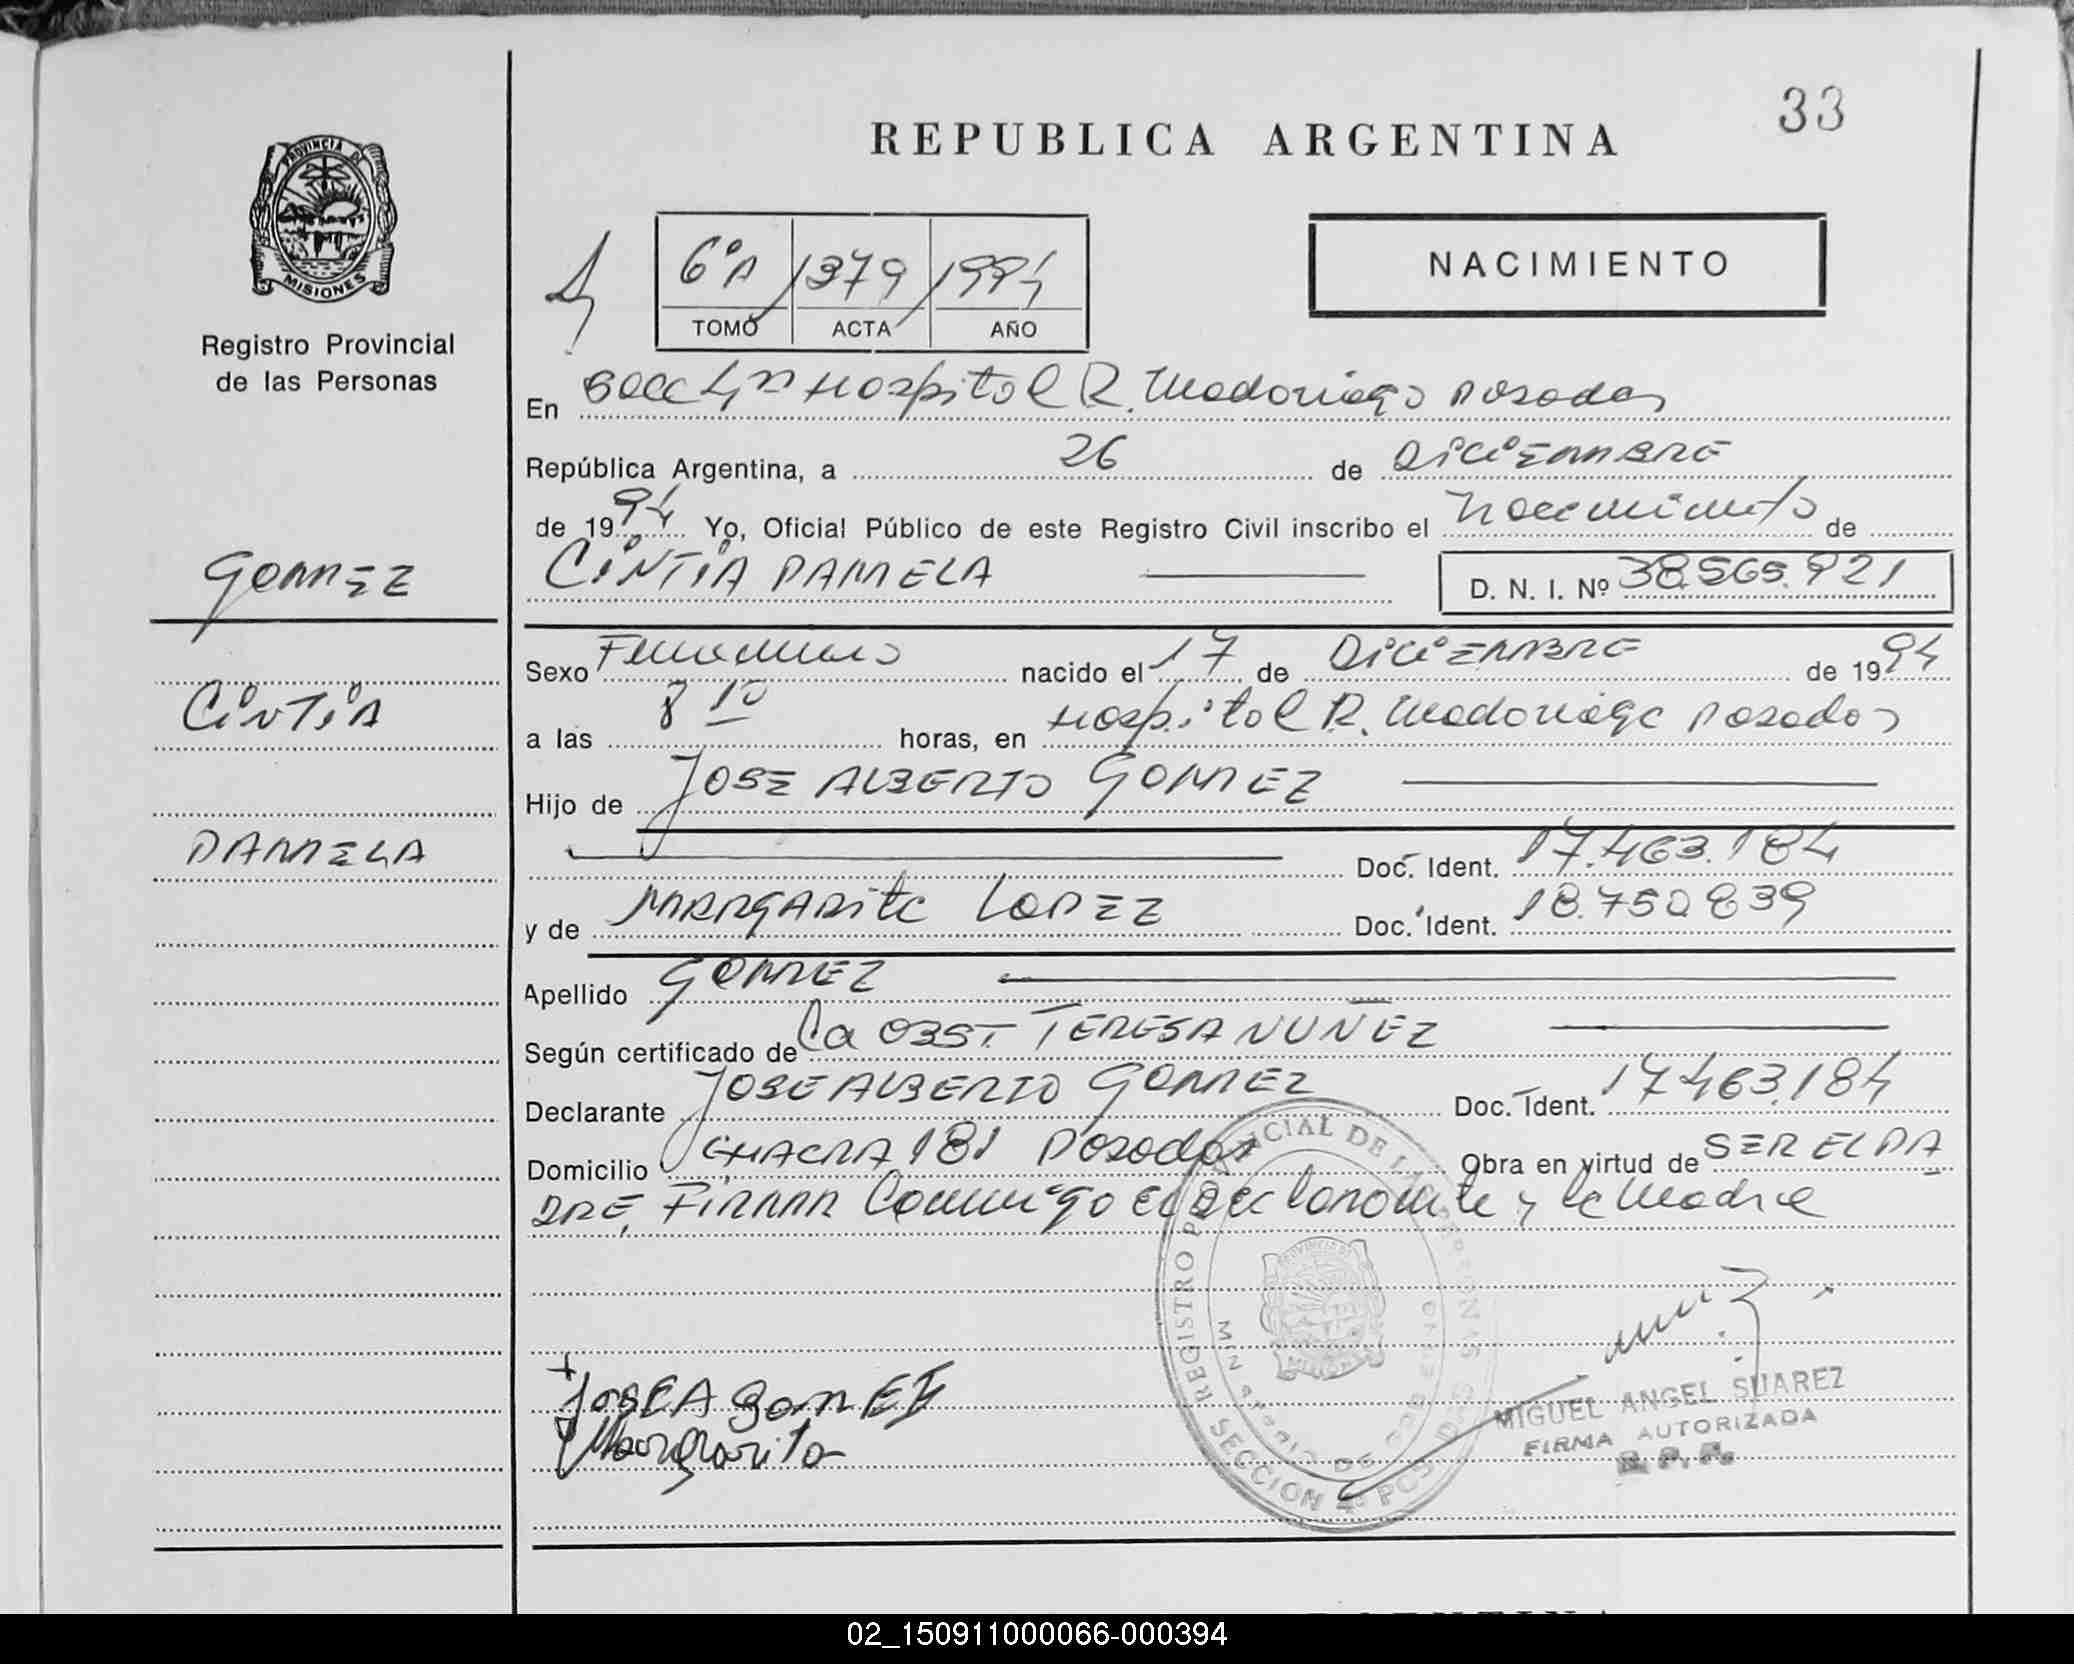 33
REPUBLICA ARGENTINA
PROVINCIA DE
MISIONES
Registro Provincial
de las Personas
6º A 1379 1994
TOMO ACTA AÑO
NACIMIENTO
En Secc 4ª Hospital R. Madariaga Posadas
República Argentina, a 26 de DICIEMBRE
de 1994 Yo, Oficial Público de este Registro Civil inscribo el Nacimiento de
CINTIA PAMELA D. N. I. Nº 38.565.921
GOMEZ
CINTIA
PAMELA
Sexo Femenino nacido el 17 de DICIEMBRE de 1994
a las 8 10 horas, en Hospital R. Madariaga Posadas
Hijo de JOSE ALBERTO GOMEZ
Doc. Ident. 17.463.184
y de MARGARITA LOPEZ Doc. Ident. 18.750.839
Apellido GOMEZ
Según certificado de La OBST. TERESA NUÑEZ
Declarante JOSE ALBERTO GOMEZ Doc. Ident. 17.463.184
Domicilio CHACRA 181 Posadas Obra en virtud de SER EL PA
DRE, FIRMAN Conmigo el declarante y la Madre
JOSE A GOMEZ
Margarita
REGISTRO PROVINCIAL DE LAS PERSONAS
SECCION 4ª POSADAS
MIGUEL ANGEL SUAREZ
FIRMA AUTORIZADA
R. P. P.
02_150911000066-000394